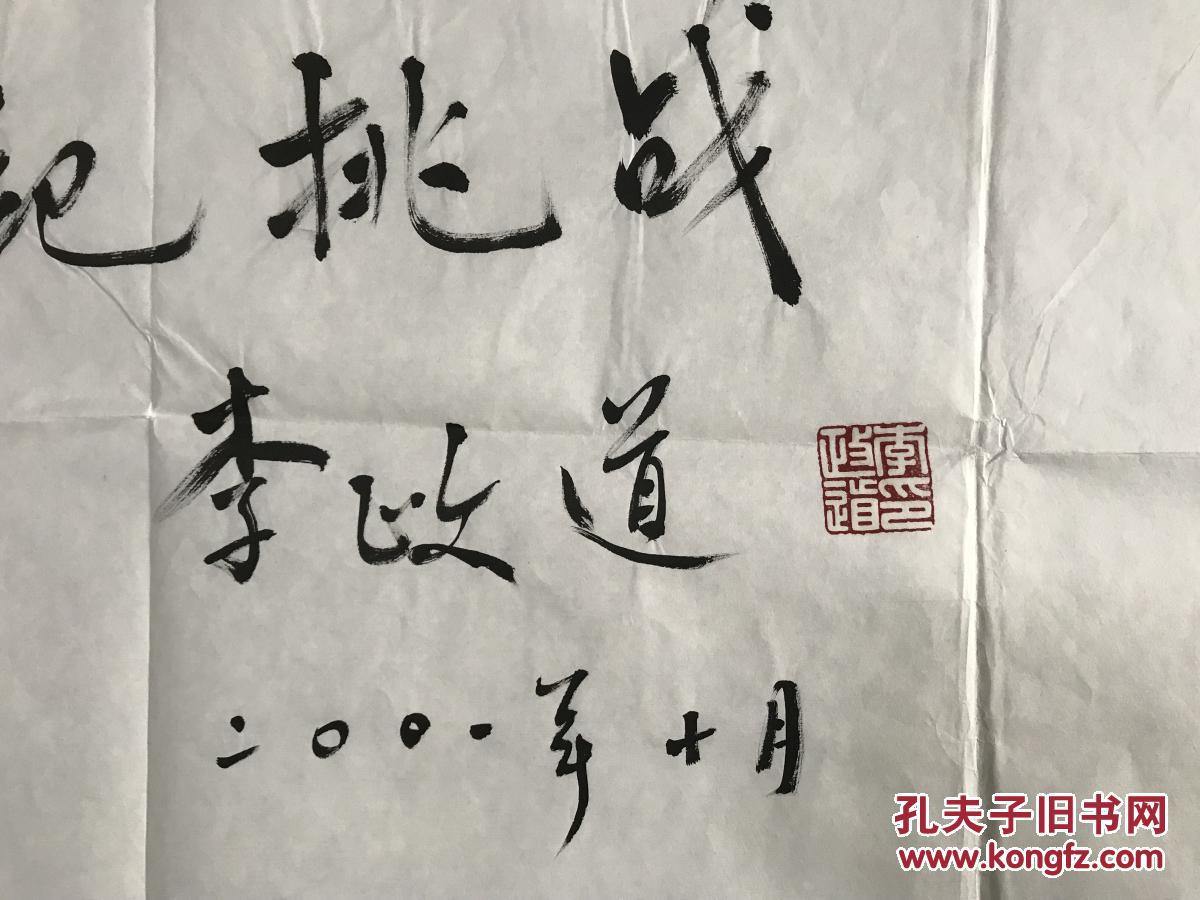 纪挑战
李政道
李政道印
二〇〇一年十月
孔夫子旧书网
www.kongfz.com